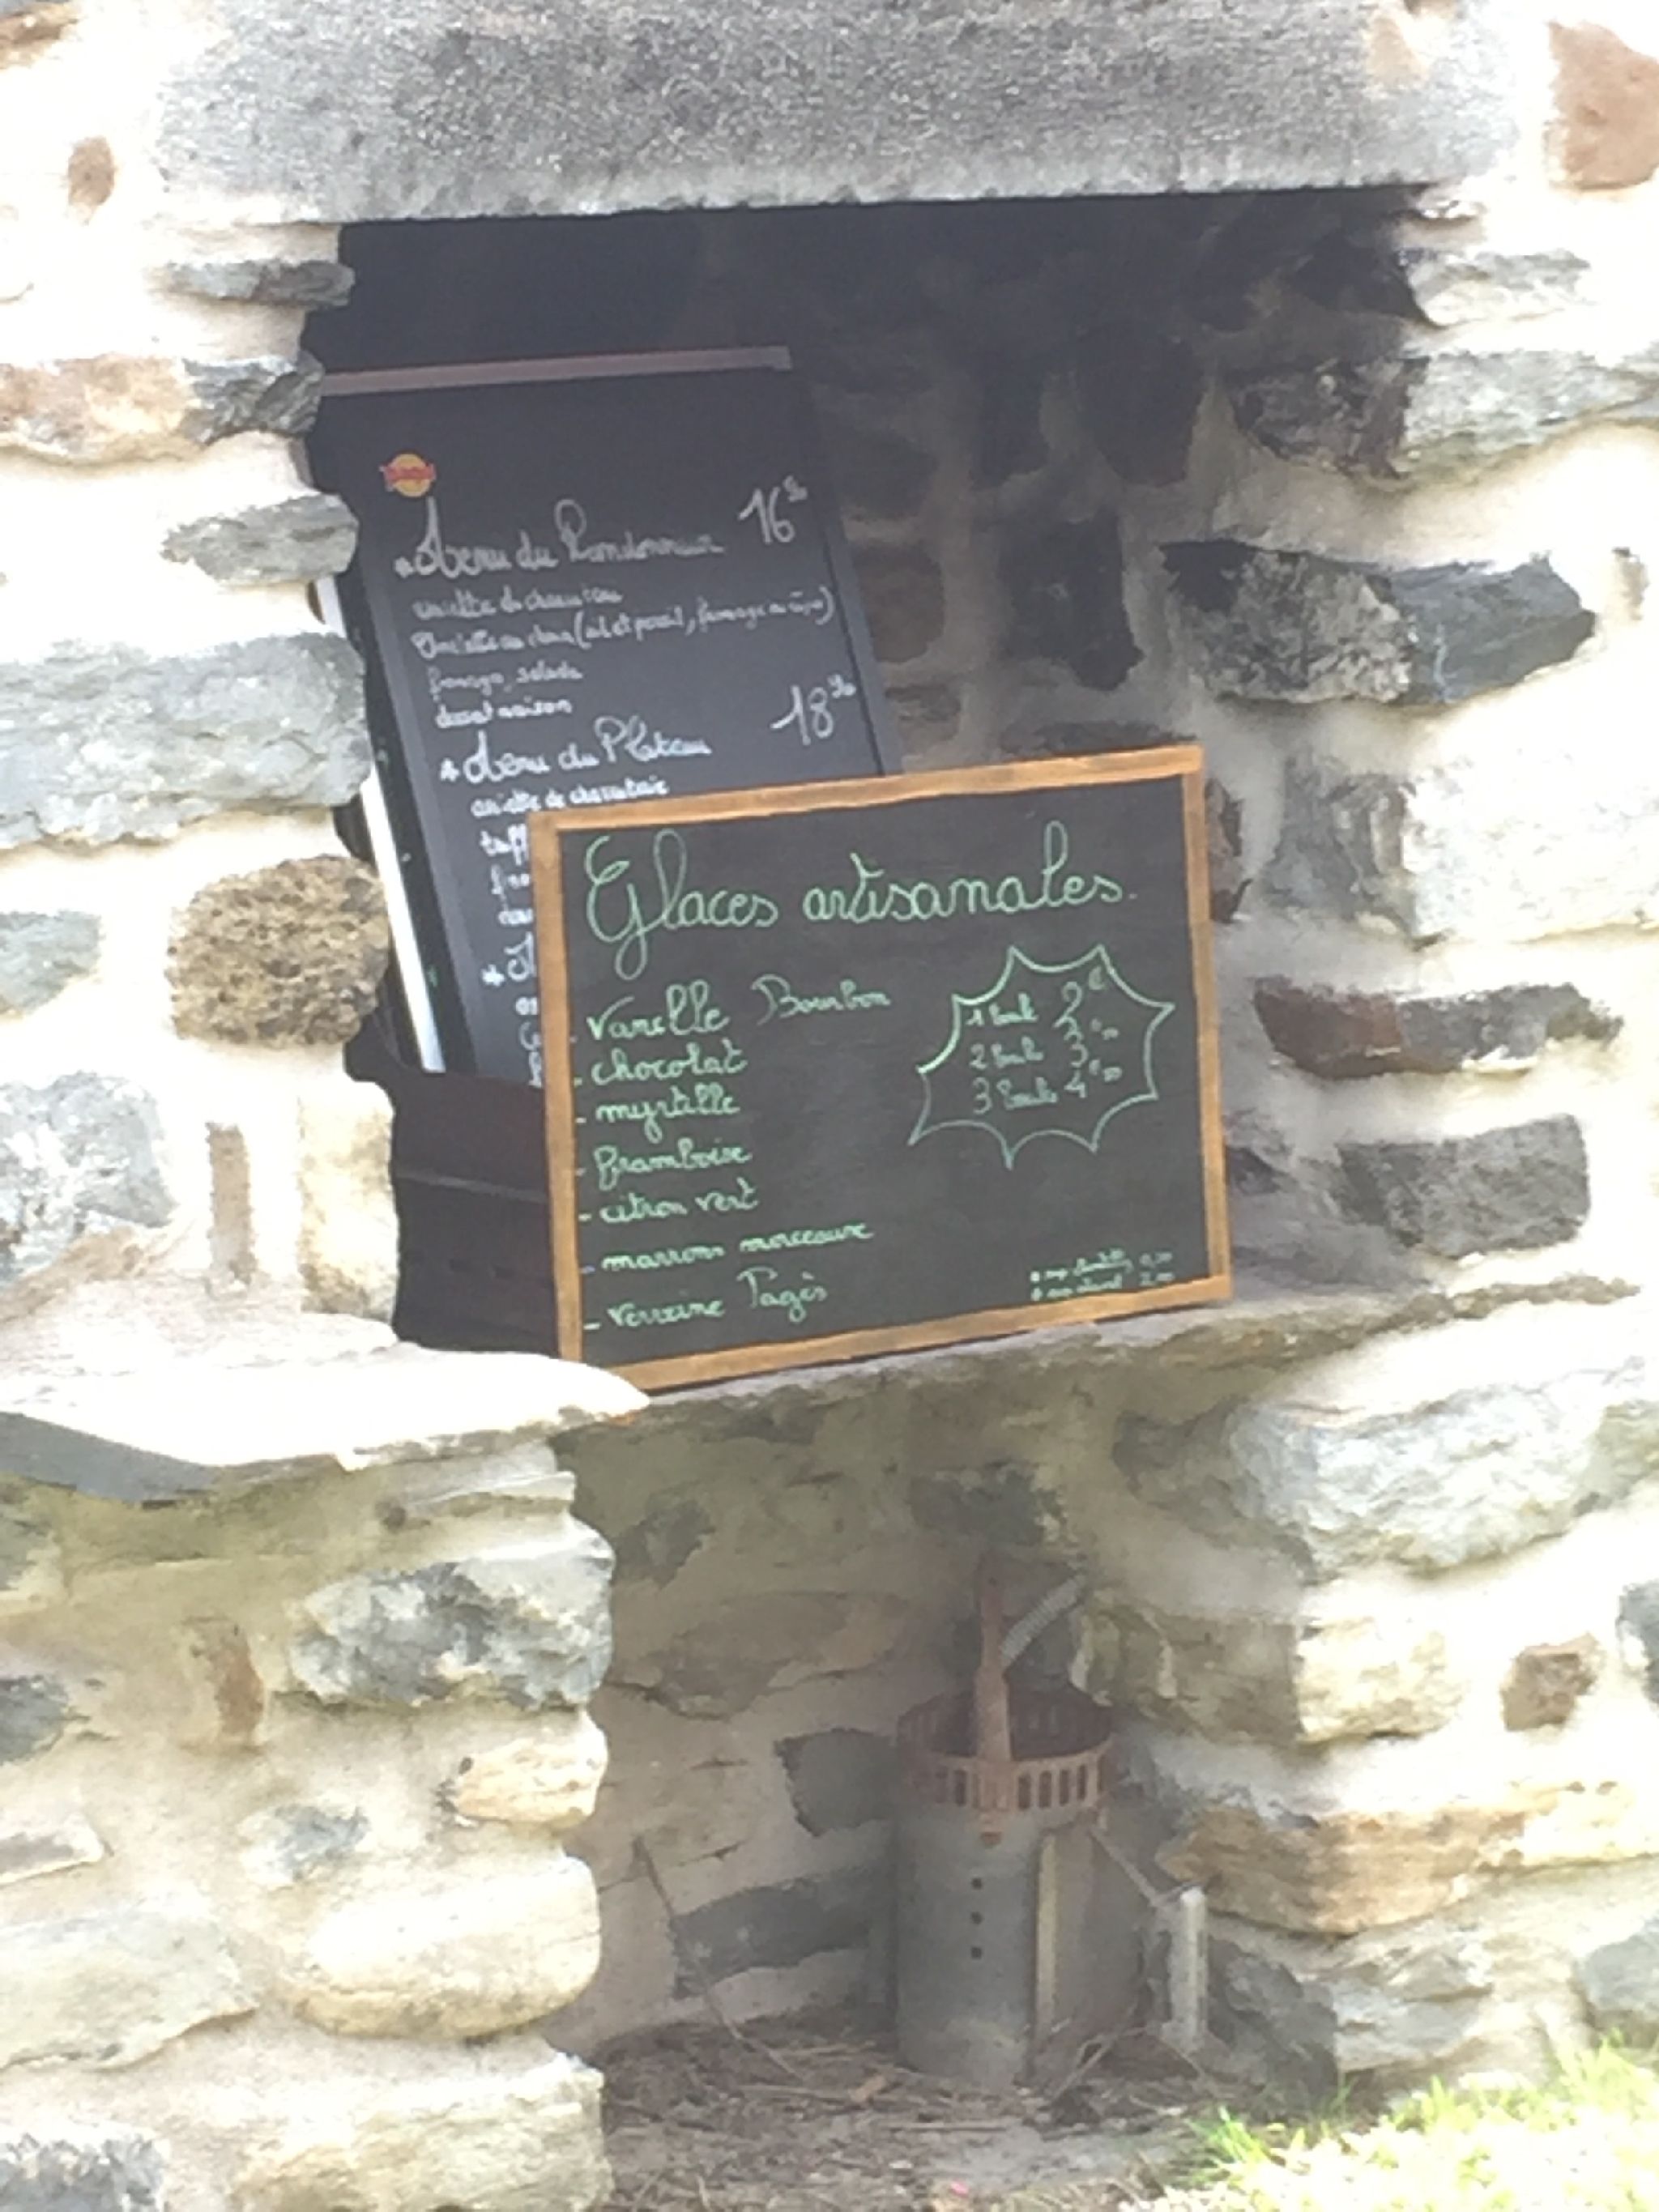 * Menu du Randonneur 16
assiette de charcuterie
Omelette au choix (ail et persil, fromage ou cèpes)
fromage, salade
dessert maison
* Menu du Plateau 18
assiette de charcuterie
Glaces artisanales.
- Vanille Bourbon
- chocolat
- myrtille
- framboise
- citron vert
- marrons morceaux
- Verveine Pagès
1 boule 2€
2 boules 3€50
3 boules 4€50